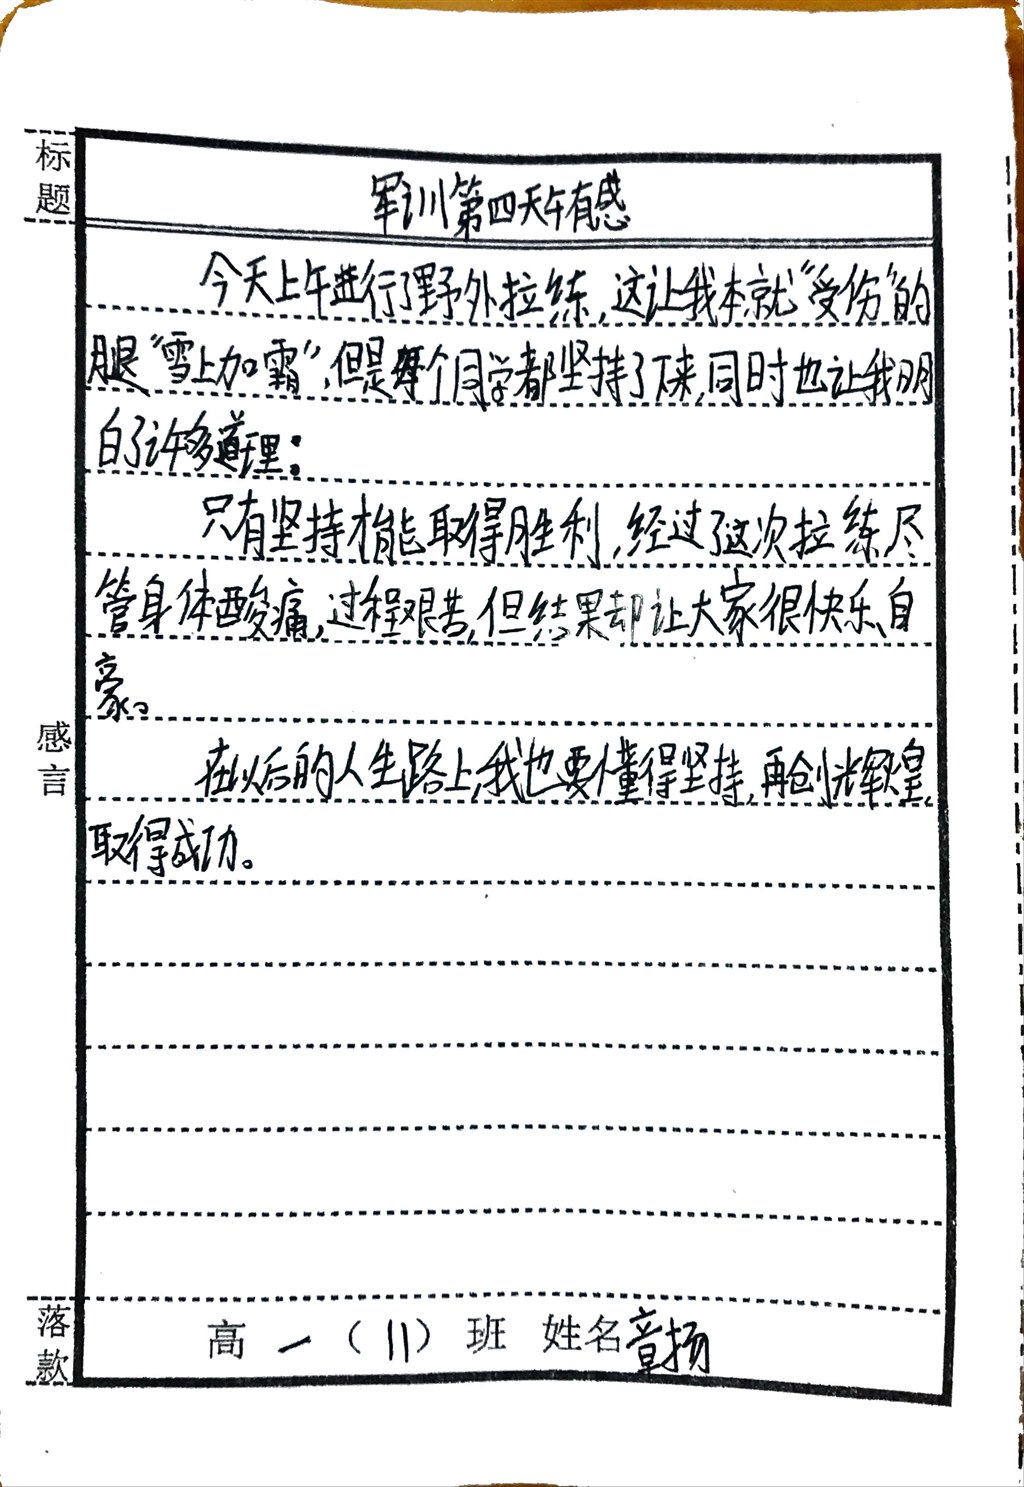 标题
军训第四天午有感
今天上午进行了野外拉练,这让我本就"受伤"的
腿"雪上加霜",但是每个同学都坚持了下来,同时也让我明
白了许多道理:
只有坚持才能取得胜利,经过了这次拉练,尽
管身体酸痛,过程艰苦,但结果却让大家很快乐、自
豪。
感言
在以后的人生路上,我也要懂得坚持,再创光辉煌,
取得成功。
落款
高一(11)班 姓名章扬